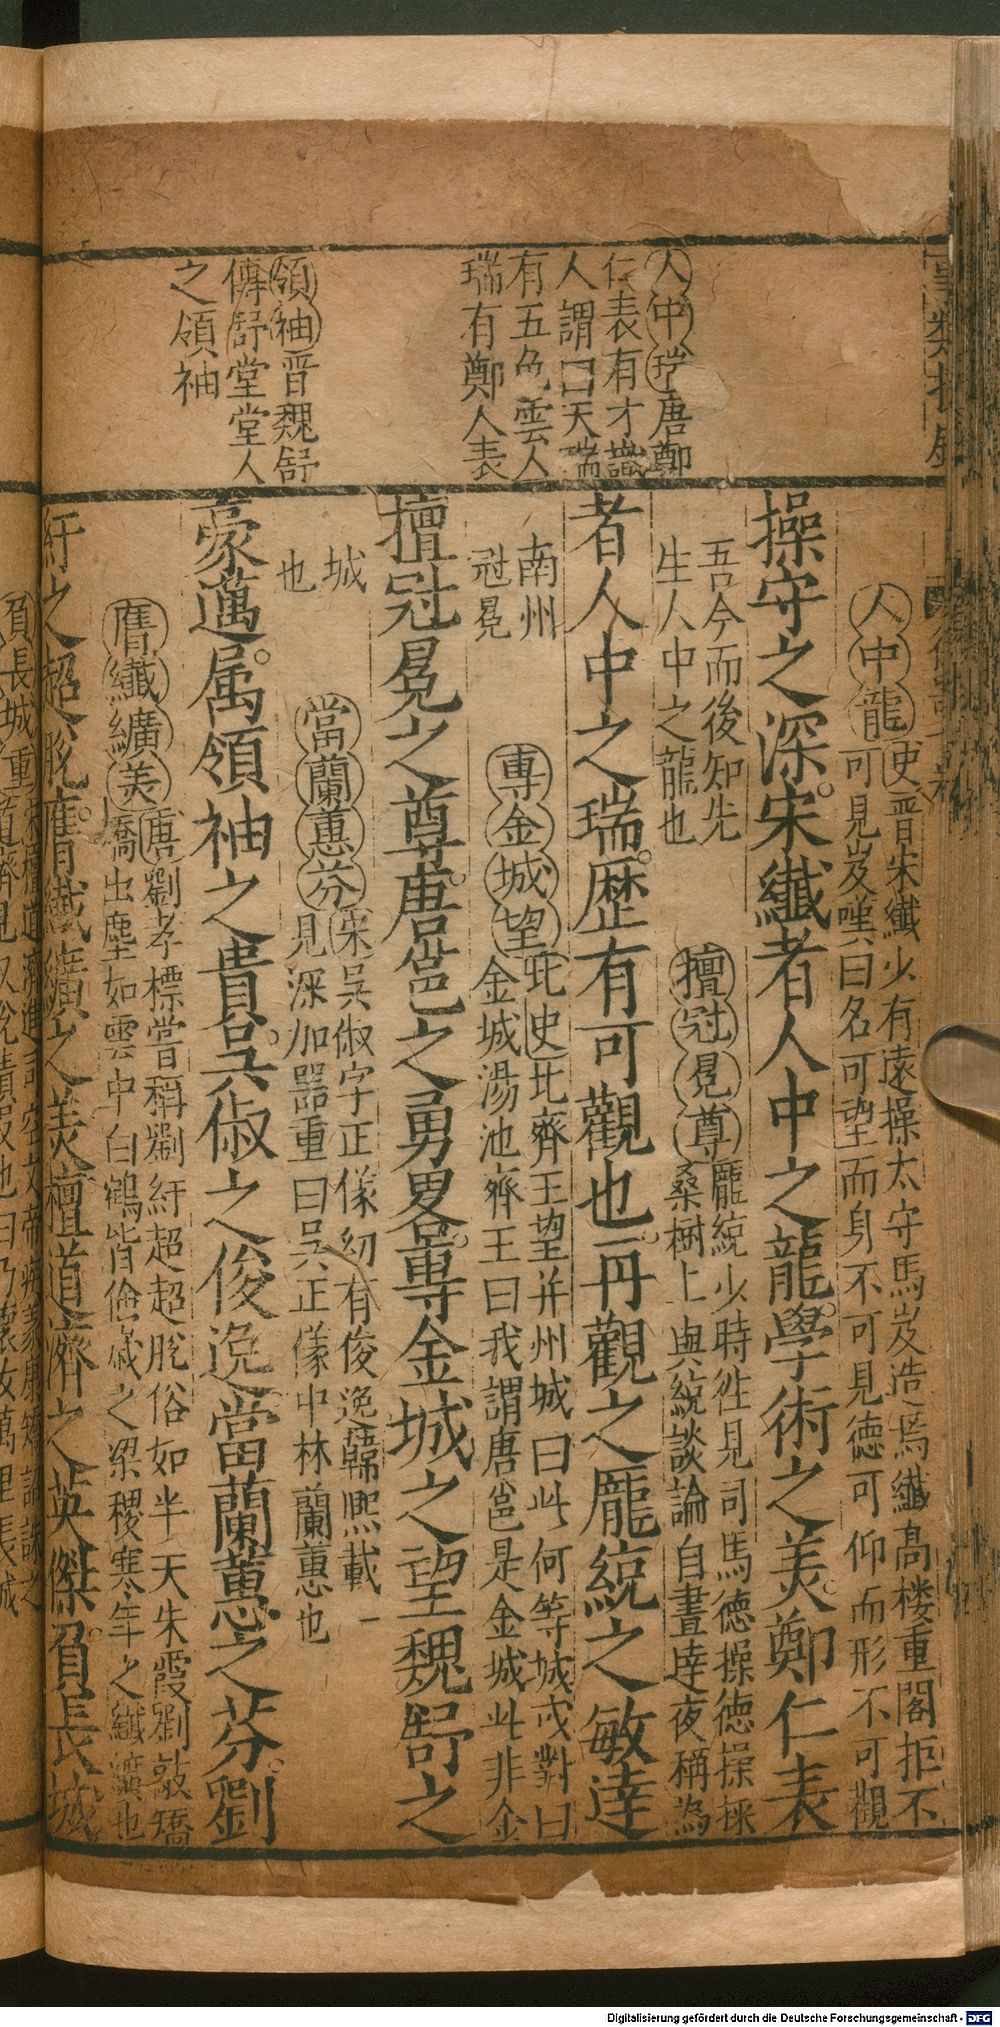 人中瑞唐鄭
仁表有才識
人謂曰天瑞
有五色雲人
瑞有鄭人表
領袖晋魏舒
傳舒堂堂人
之領袖
人中龍史晋宋纖少有遠操太守馬岌造焉纖髙楼重閣拒不
可見岌嘆曰名可望而身不可見德可仰而形不可觀
操守之深宋纖者人中之龍學術之美鄭仁表
吾今而後知先
生人中之龍也
擅冠冕尊龎統少時徃見司馬德操德操採
桑樹上與統談論自晝達夜稱為
者人中之瑞歴有可觀也一冊觀之龎統之敏達
南州
冠冕
專金城望北史北齊王望并州城曰此何等城或對曰
金城湯池齊王曰我謂唐邕是金城此非金
擅冠冕之尊唐邕之勇畧專金城之望魏舒之
城
也
當蘭蕙芬宋吳俶字正儀幼有俊逸韓熙載一
見深加器重曰吳正儀中林蘭蕙也
豪邁属領袖之貴吳俶之俊逸當蘭蕙之芬劉
膺纖纊美唐劉孝標嘗稱劉紆超超脫俗如半天朱霞劉敲矯
矯出塵如雲中白鶴皆儉歲之梁稷寒年之纖纊也
紆之超脫膺纖纊之美檀道濟之英傑負長城
Digitalisierung gefördert durch die Deutsche Forschungsgemeinschaft - DFG